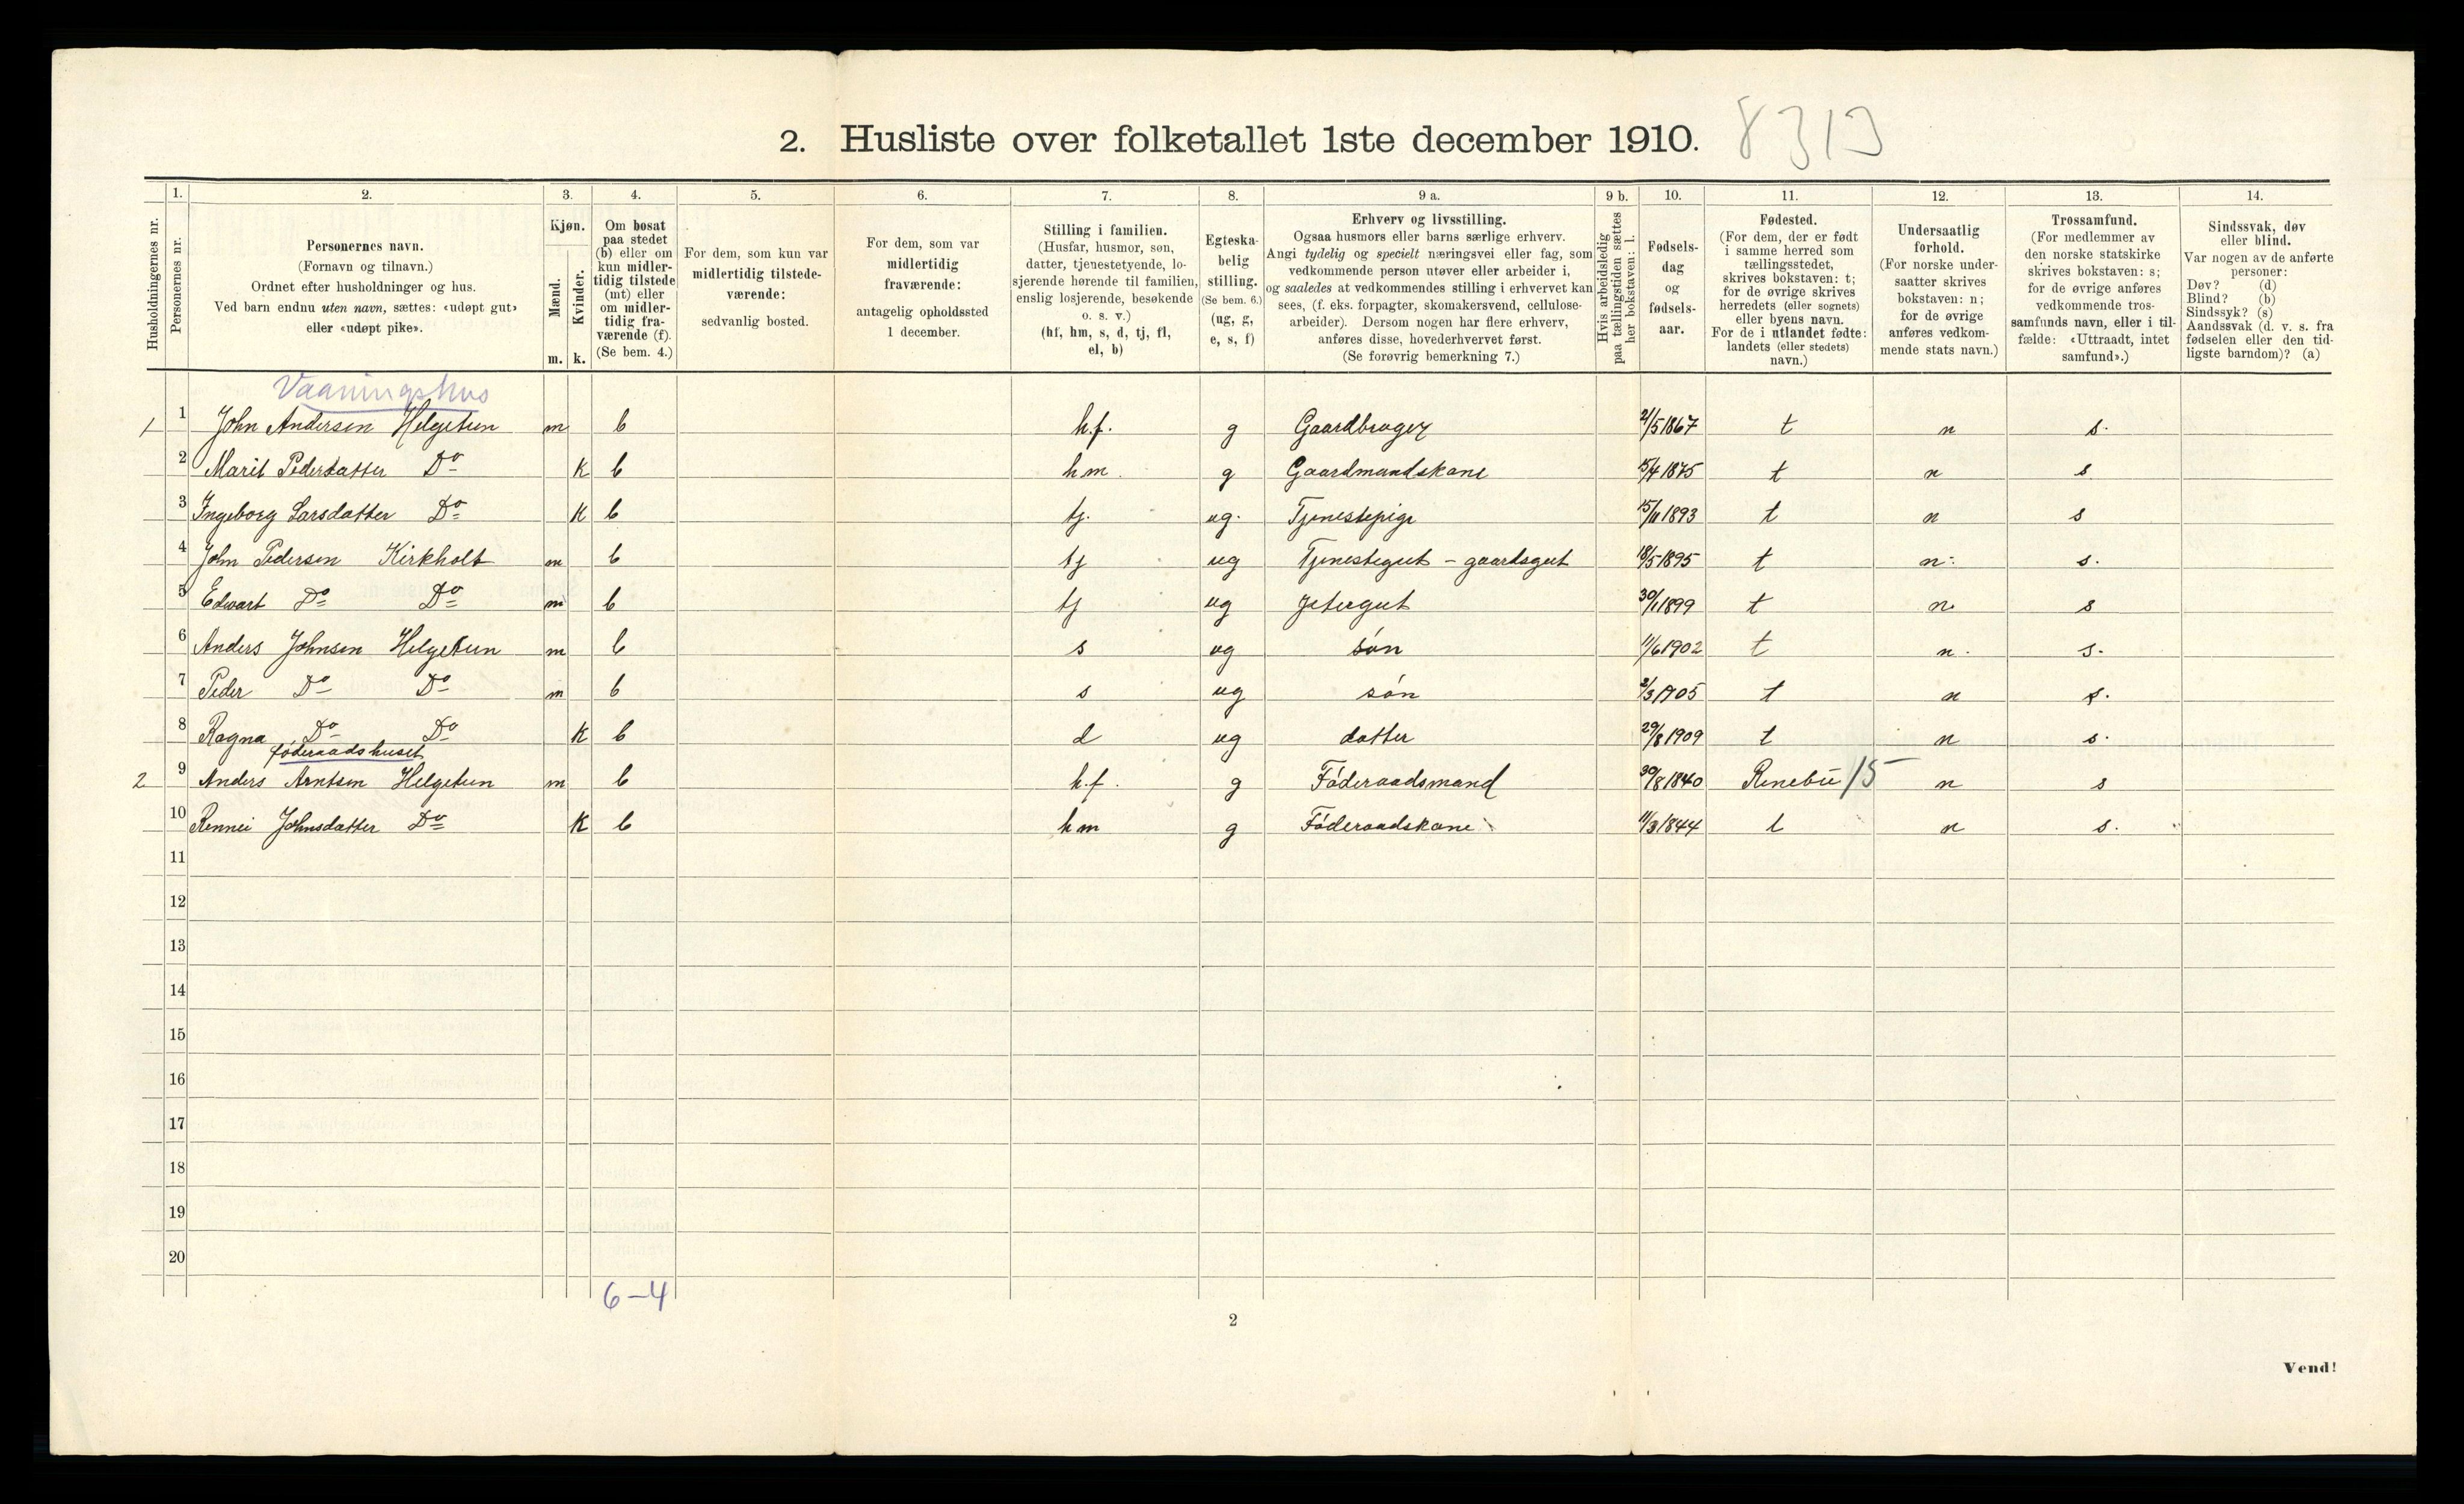 2. Husliste over folketallet 1ste december 1910. 8313
Husholdningernes nr.
1. Personernes nr.
2. Personernes navn. (Fornavn og tilnavn.) Ordnet efter husholdninger og hus. Ved barn endnu uten navn, sættes: «udøpt gut» eller «udøpt pike».
3. Kjøn. Mænd. m. Kvinder. k.
4. Om bosat paa stedet (b) eller om kun midlertidig tilstede (mt) eller om midlertidig fraværende (f). (Se bem. 4.)
5. For dem, som kun var midlertidig tilstedeværende: sedvanlig bosted.
6. For dem, som var midlertidig fraværende: antagelig opholdssted 1 december.
7. Stilling i familien. (Husfar, husmor, søn, datter, tjenestetyende, losjerende hørende til familien, enslig losjerende, besøkende o. s. v.) (hf, hm, s, d, tj, fl, el, b)
8. Egteskabelig stilling. (Se bem. 6.) (ug, g, e, s, f)
9 a. Erhverv og livsstilling. Ogsaa husmors eller barns særlige erhverv. Angi tydelig og specielt næringsvei eller fag, som vedkommende person utøver eller arbeider i, og saaledes at vedkommendes stilling i erhvervet kan sees, (f. eks. forpagter, skomakersvend, cellulosearbeider). Dersom nogen har flere erhverv, anføres disse, hovederhvervet først. (Se forøvrig bemerkning 7.)
9 b. Hvis arbeidsledig paa tællingstiden sættes her bokstaven: l.
10. Fødselsdag og fødselsaar.
11. Fødested. (For dem, der er født i samme herred som tællingsstedet, skrives bokstaven: t; for de øvrige skrives herredets (eller sognets) eller byens navn. For de i utlandet fødte: landets (eller stedets) navn.)
12. Undersaatlig forhold. (For norske undersaatter skrives bokstaven: n; for de øvrige anføres vedkommende stats navn.)
13. Trossamfund. (For medlemmer av den norske statskirke skrives bokstaven: s; for de øvrige anføres vedkommende trossamfunds navn, eller i tilfælde: «Uttraadt, intet samfund».)
14. Sindssvak, døv eller blind. Var nogen av de anførte personer: Døv? (d) Blind? (b) Sindssyk? (s) Aandssvak (d. v. s. fra fødselen eller den tidligste barndom)? (a)
Vaaningshus
1 1 John Andersen Helgetun m b h.f. g Gaardbruger 21/5 1867 t n s.
2 Marit Pedersdatter Do K b hm. g Gaardmandskone 15/4 1875 t n s
3 Ingeborg Larsdatter Do K b tj. ug. Tjenestepige 15/11 1893 t n s
4 John Pedersen Kirkholt m b tj ug Tjenestegut - gaardsgut 18/5 1895 t n. s.
5 Edvart Do Do m b tj ug Jetergut 30/1 1899 t n. s
6 Anders Johnsen Helgetun m b s ug søn 11/6 1902 t n. s.
7 Peder Do Do m b s ug søn 2/3 1905 t n s.
8 Ragna Do Do K b d ug datter 29/8 1909 t n s.
føderaadshuset
2 9 Anders Arntsen Helgetun m b h.f. g Føderaadsmand 30/8 1840 Renebu 15 n s
10 Rennei Johnsdatter Do K b hm g Føderaadskone 11/3 1844 t n s.
11
12
13
14
15
16
17
18
19
20
6-4
2
Vend!